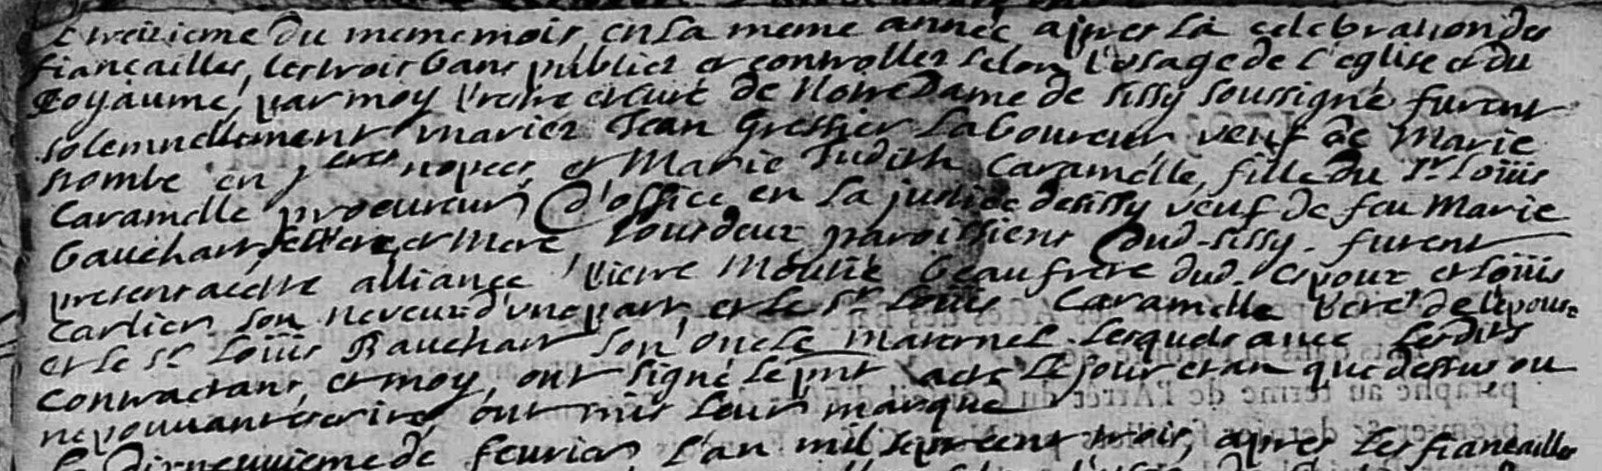 Le treizieme du meme mois, en la meme année apres la celebration des
fiançailles, les trois bans publiez et controllez selon l'usage de l'eglise et du
Royaume, par moy Pretre et Curé de Notre Dame de sissy soussigné furent
solemnellement mariez Jean Gressier Laboureur veuf de Marie
hombe en nopces, et Marie Judith Caramelle, fille du Sr Loüis
Caramelle procureur d'office en la justice de sissy veuf de feu Marie
Bauchart, et Mere tous deux paroissiens dud. sissy. furent
presens a cette alliance Pierre beaufrere dud. Epoux et Loüis
Carlier son neveu d'une part, et le Sr Louis Caramelle Pere de l'epouse
et le Sr Loüis Bauchart son oncle maternel. lesquels avec lesdits
contractans, et moy, ont signé le pnt acte le jour et an que dessus ou
ne pouvant escrire, ont mis leur marque
Le dixneuvieme de feurier l'an mil sept cent trois, apres les fiançailles